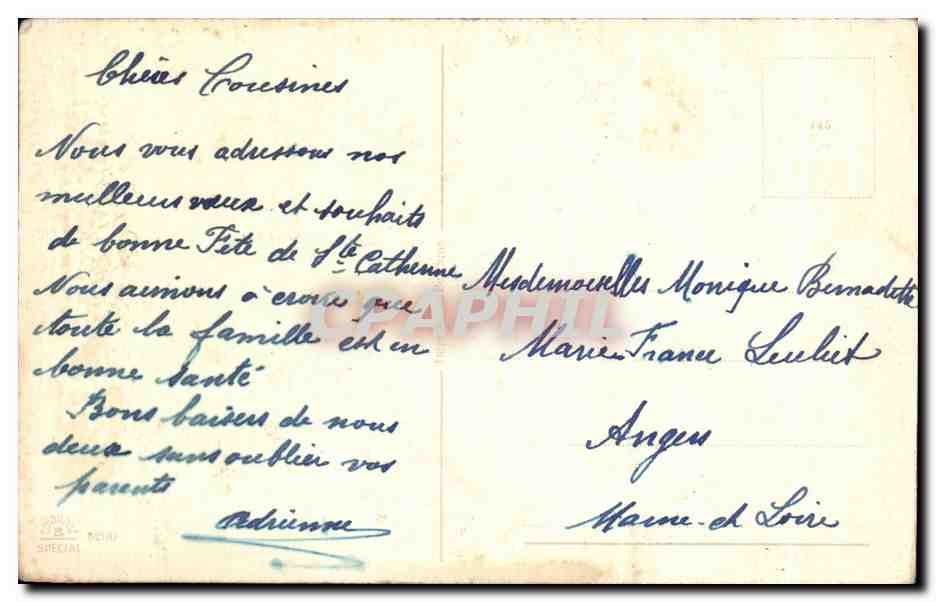 Chères Cousines
Nous vous adressons nos
meilleurs vœux et souhaits
de bonne Fête de Ste Catherine
Nous aimons à croire que
toute la famille est en
bonne santé
Bons baisers de nous
deux sans oublier vos
parents
Adrienne
SPECIAL
Mesdemoiselles Monique Bernadette
Marie France
Angers
Maine et Loire
CPAPHIL